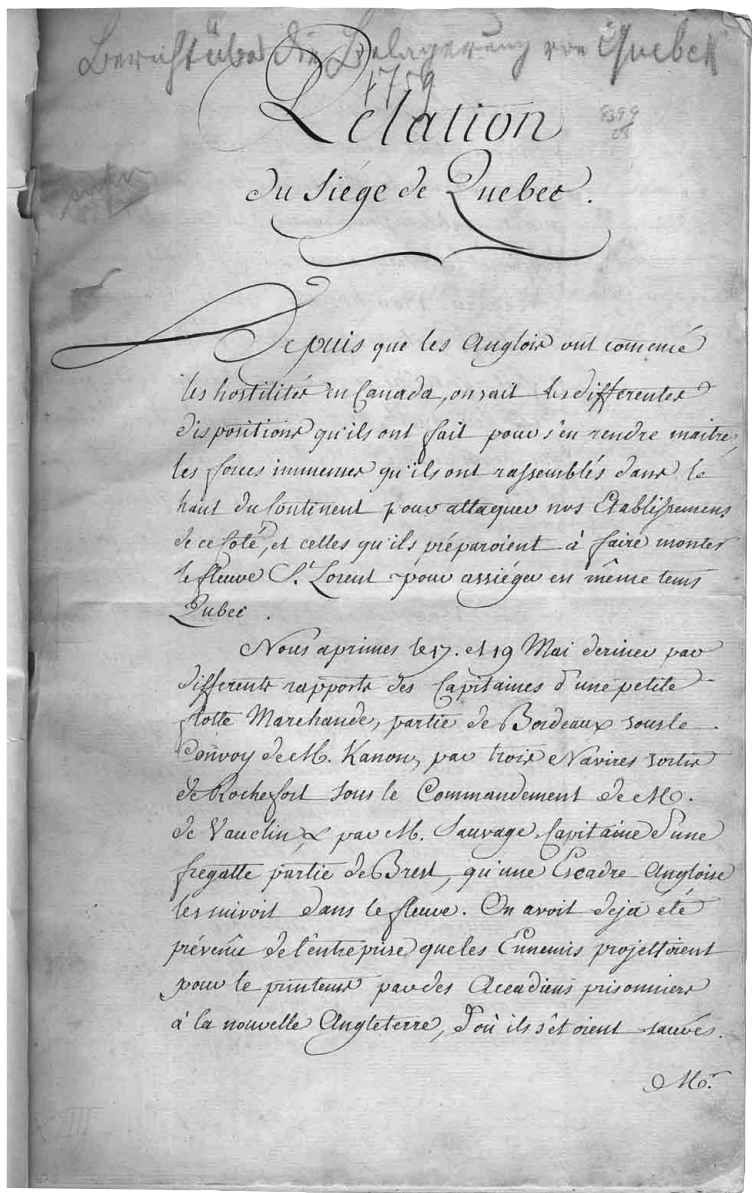 Bericht über die Belagerung von Quebek
1759
Relation
du Siége de Quebec.
Depuis que les Anglois ont comencé
les hostilités en Canada, on sait les differentes
dispositions qu'ils ont fait pour s'en rendre maitre,
les forces immenses qu'ils ont rassemblés dans le
haut du Continent pour attaquer nos Etablissemens
de ce Coté, et celles qu'ils préparoient à faire monter
le fleuve St. Lorent pour assiéger en même tems
Qubec.
Nous aprimes le 17. et 19 Mai dernier par
differents rapports des Capitaines d'une petite
flotte Marchande, partie de Bordeaux sous le
Convoy de M. Kanon, par trois Navires sortis
de Rochefort sous le Commandement de M.
de Vauclin, & par M. Sauvage Capitaine d'une
fregatte partie de Brest, qu'une Escadre Angloise
les suivoit dans le fleuve. On avoit deja eté
prévenû de l'entreprise que les Ennemis projettoient
pour le printems par des Accadiens prisonniers
à la nouvelle Angleterre, d'où ils s'étoient sauvés.
Mr.